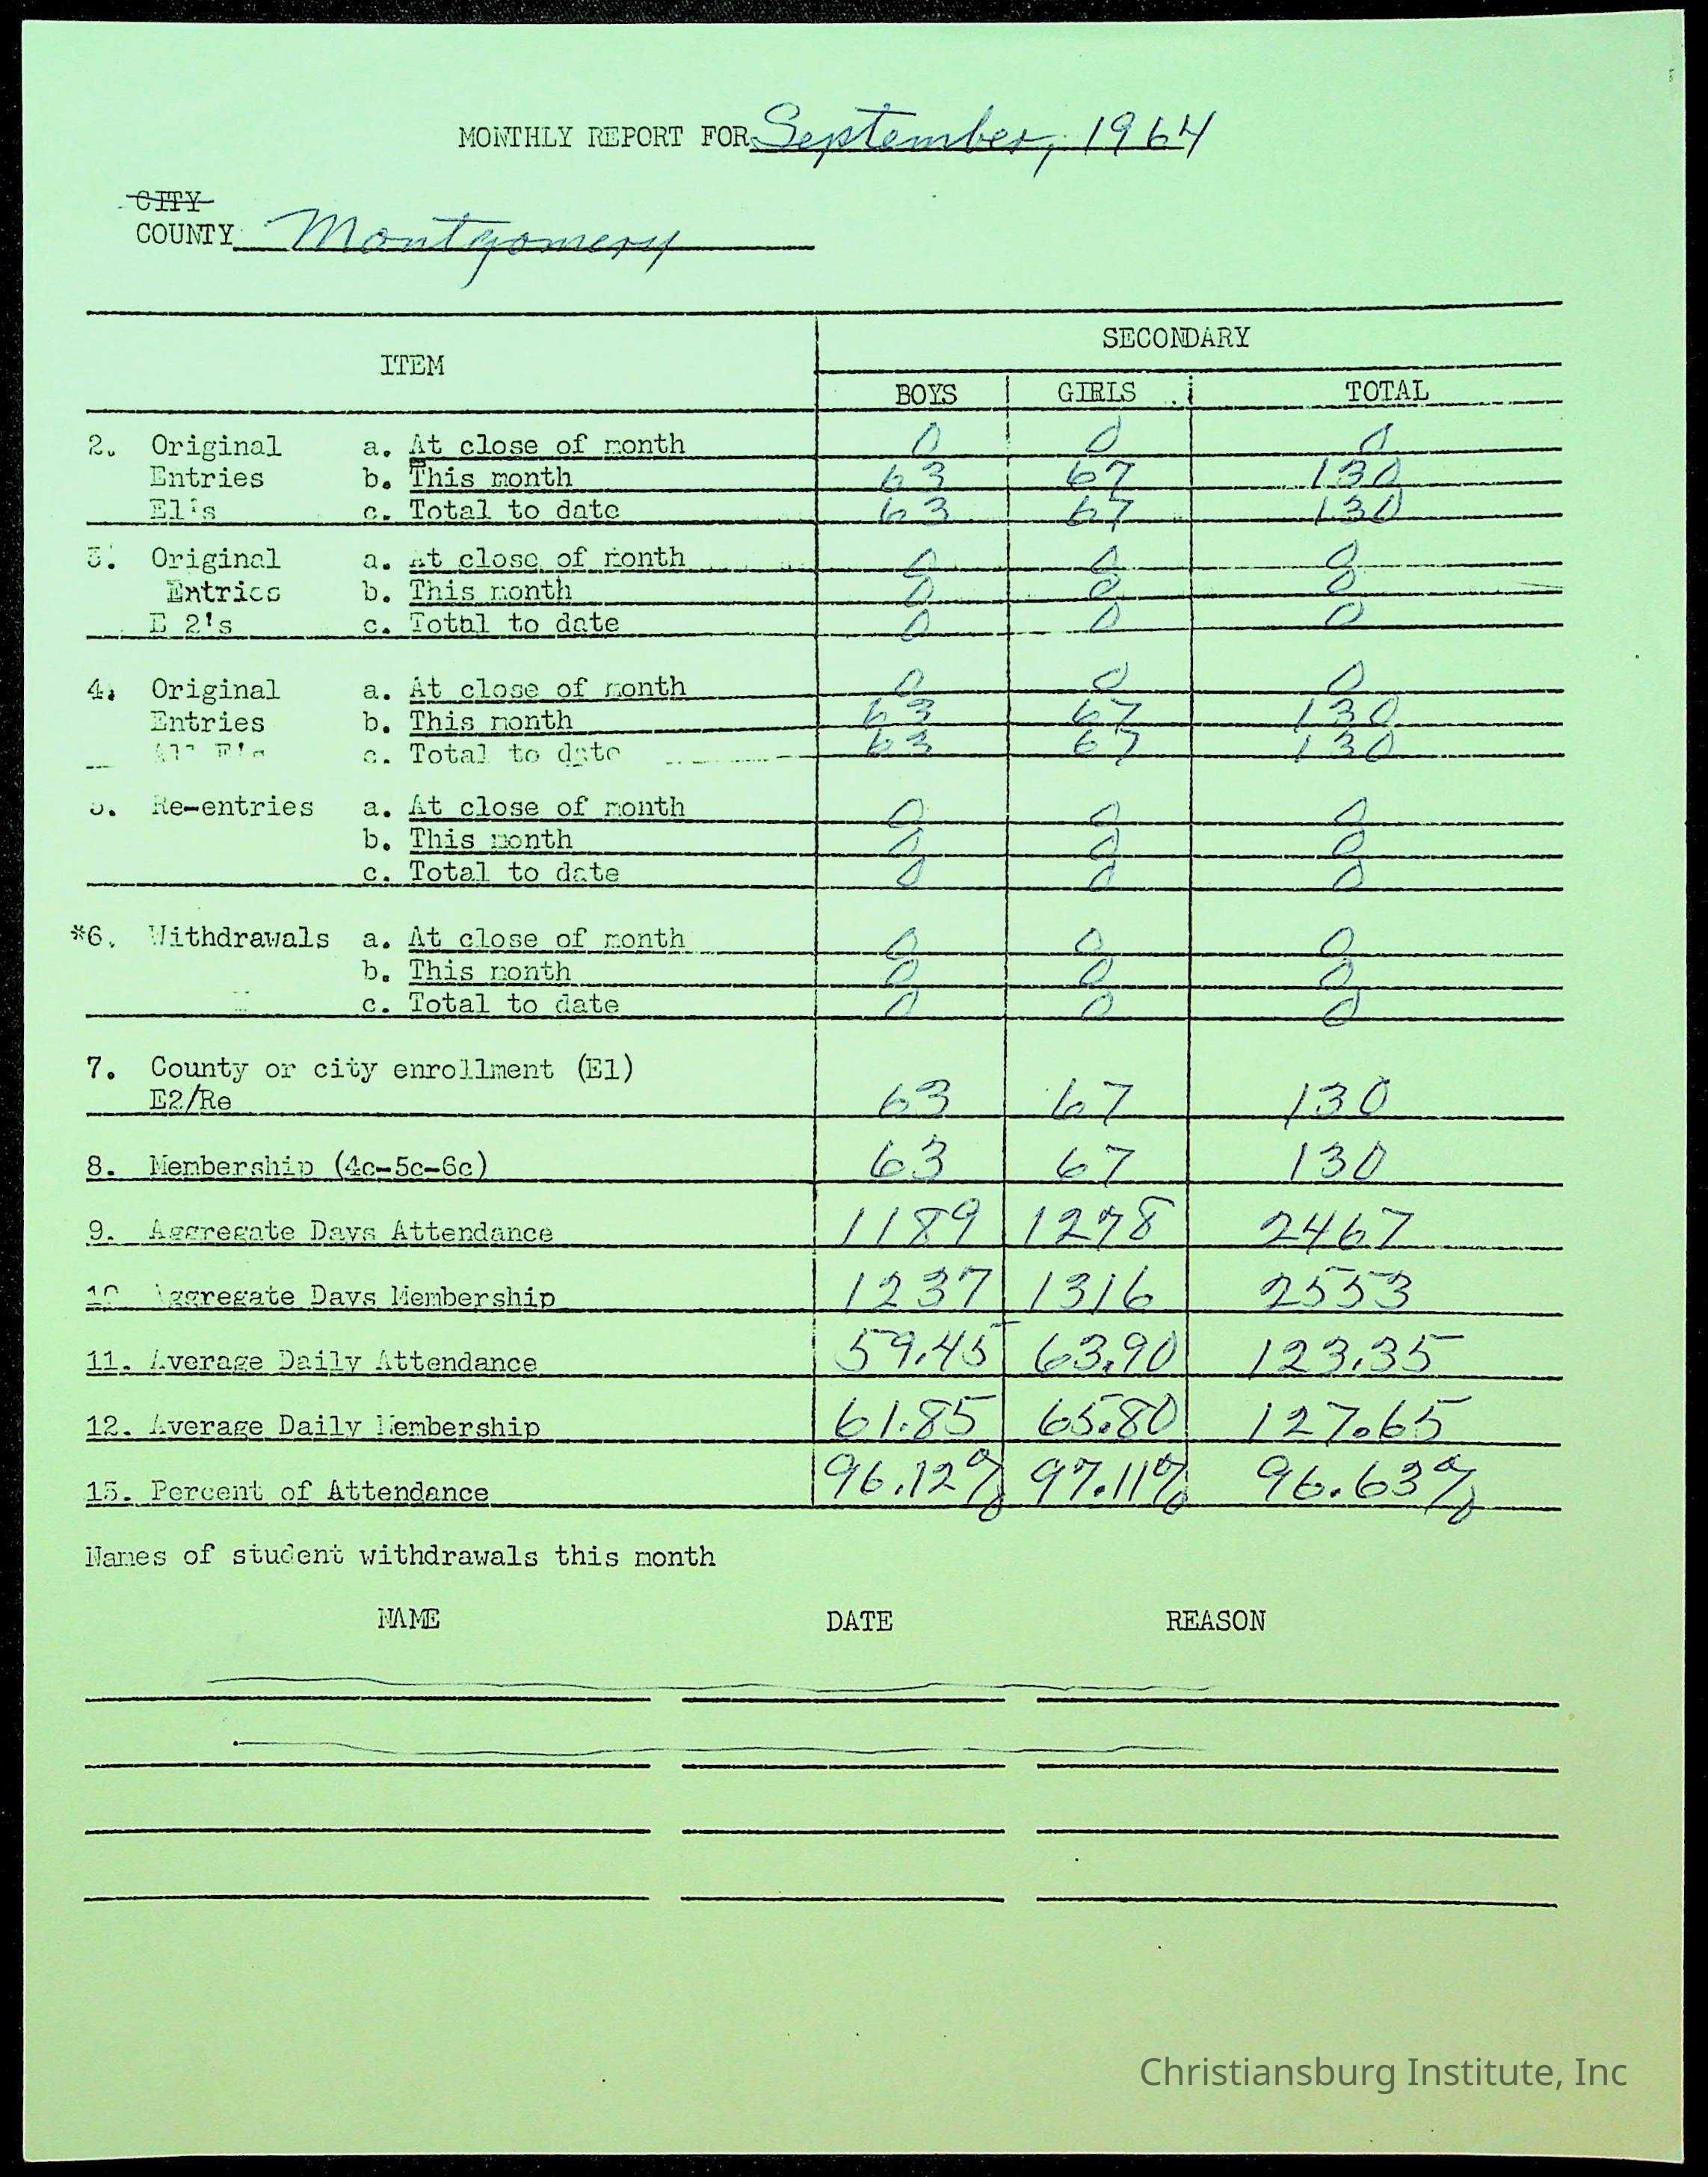 MONTHLY REPORT FOR September, 1964
CITY
COUNTY Montgomery
ITEM SECONDARY
BOYS GIRLS TOTAL
2. Original a. At close of month 0 0 0
Entries b. This month 63 67 130
E1's c. Total to date 63 67 130
3. Original a. At close of month 0 0 0
Entries b. This month 0 0 0
E 2's c. Total to date 0 0 0
4. Original a. At close of month 0 0 0
Entries b. This month 63 67 130
All E's c. Total to date 63 67 130
5. Re-entries a. At close of month 0 0 0
b. This month 0 0 0
c. Total to date 0 0 0
*6. Withdrawals a. At close of month 0 0 0
b. This month 0 0 0
c. Total to date 0 0 0
7. County or city enrollment (E1)
E2/Re 63 67 130
8. Membership (4c-5c-6c) 63 67 130
9. Aggregate Days Attendance 1189 1278 2467
10 Aggregate Days Membership 1237 1316 2553
11. Average Daily Attendance 59.45 63.90 123.35
12. Average Daily Membership 61.85 65.80 127.65
13. Percent of Attendance 96.12% 97.11% 96.63%
Names of student withdrawals this month
NAME DATE REASON
Christiansburg Institute, Inc